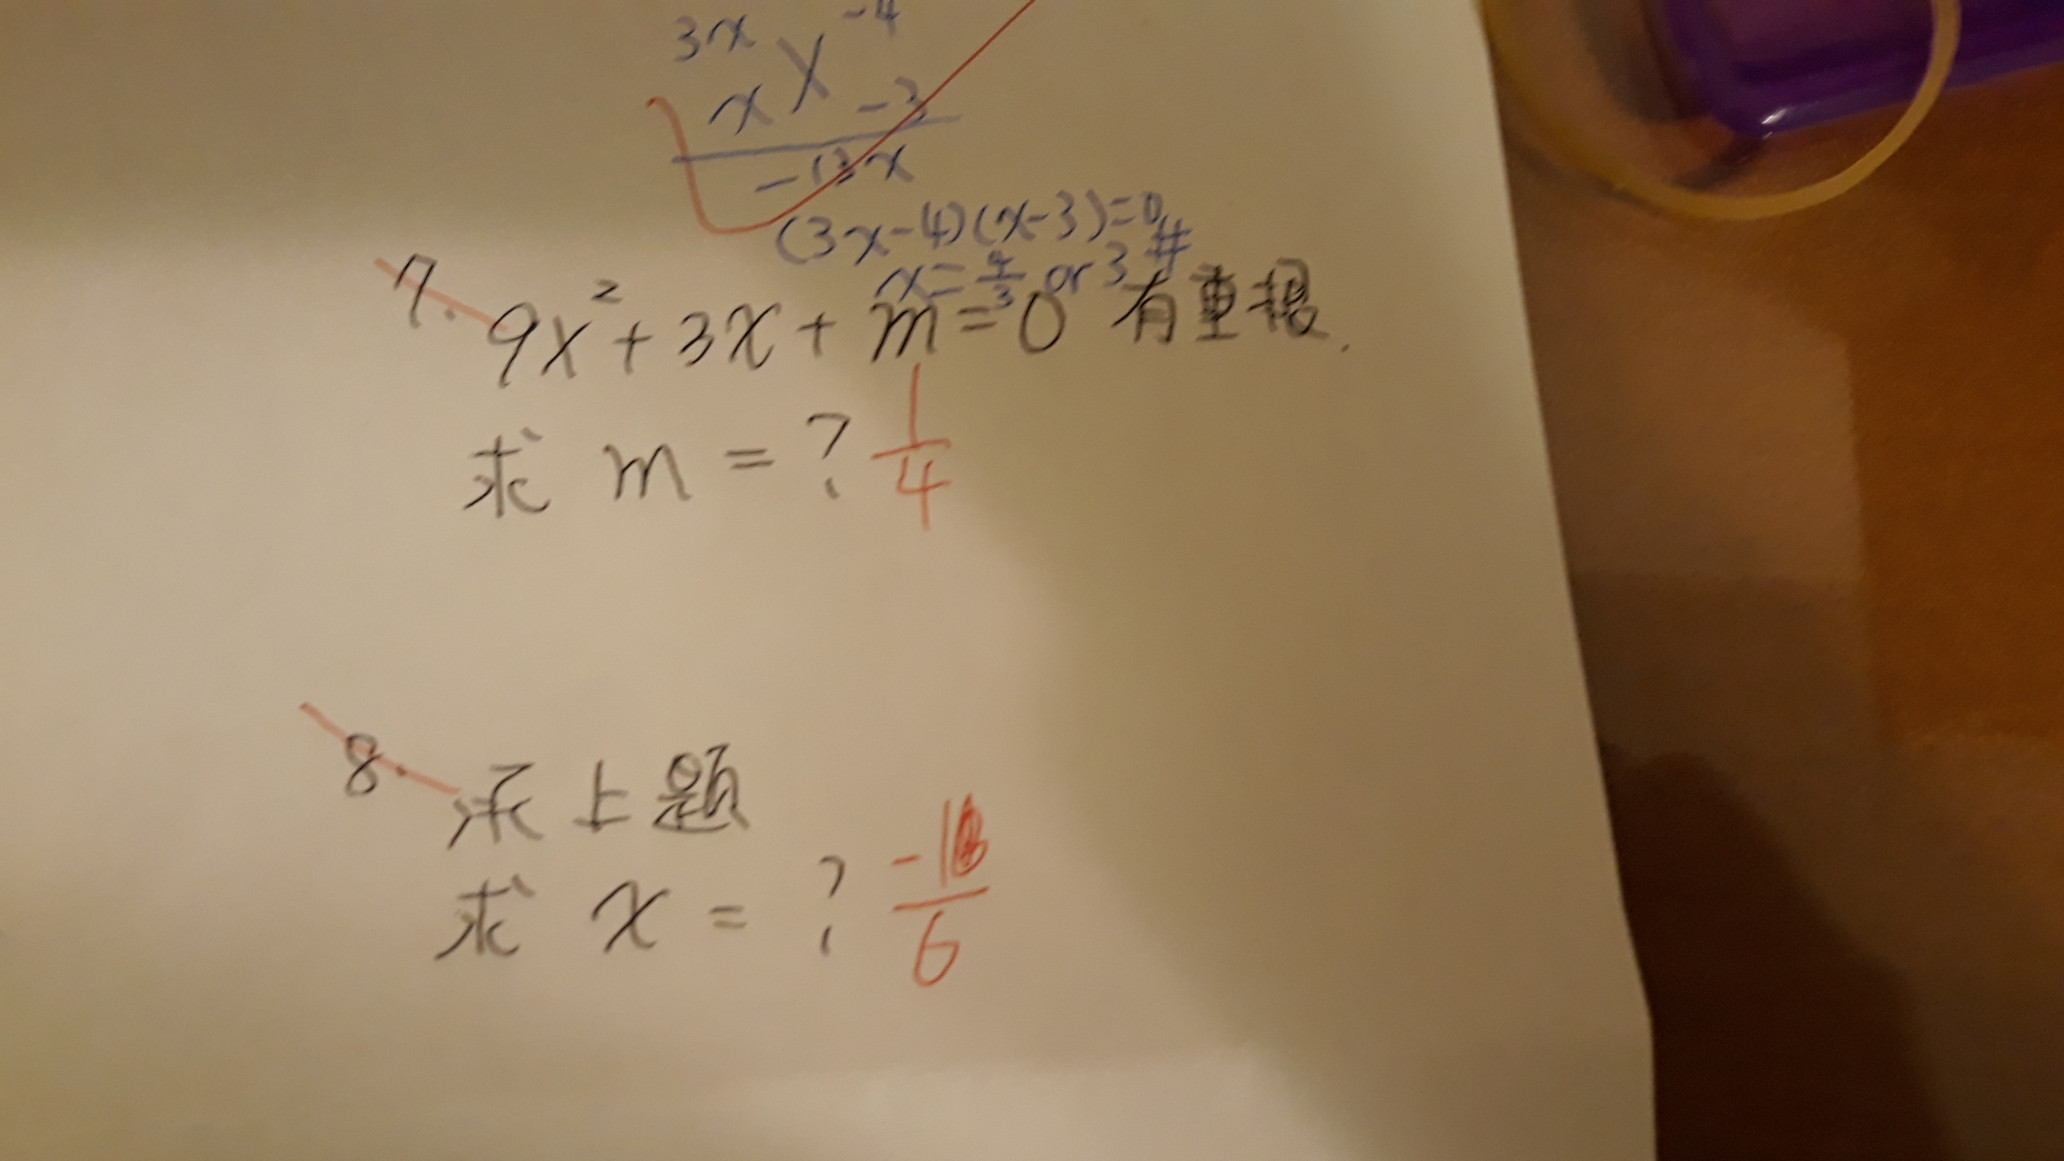 3x -4
x -3
-13x
(3x-4)(x-3)=0
x=4/3 or 3 #
7. 9x²+3x+m=0 有重根.
求 m = ? 1/4
8. 承上題
求 x = ? -1/6